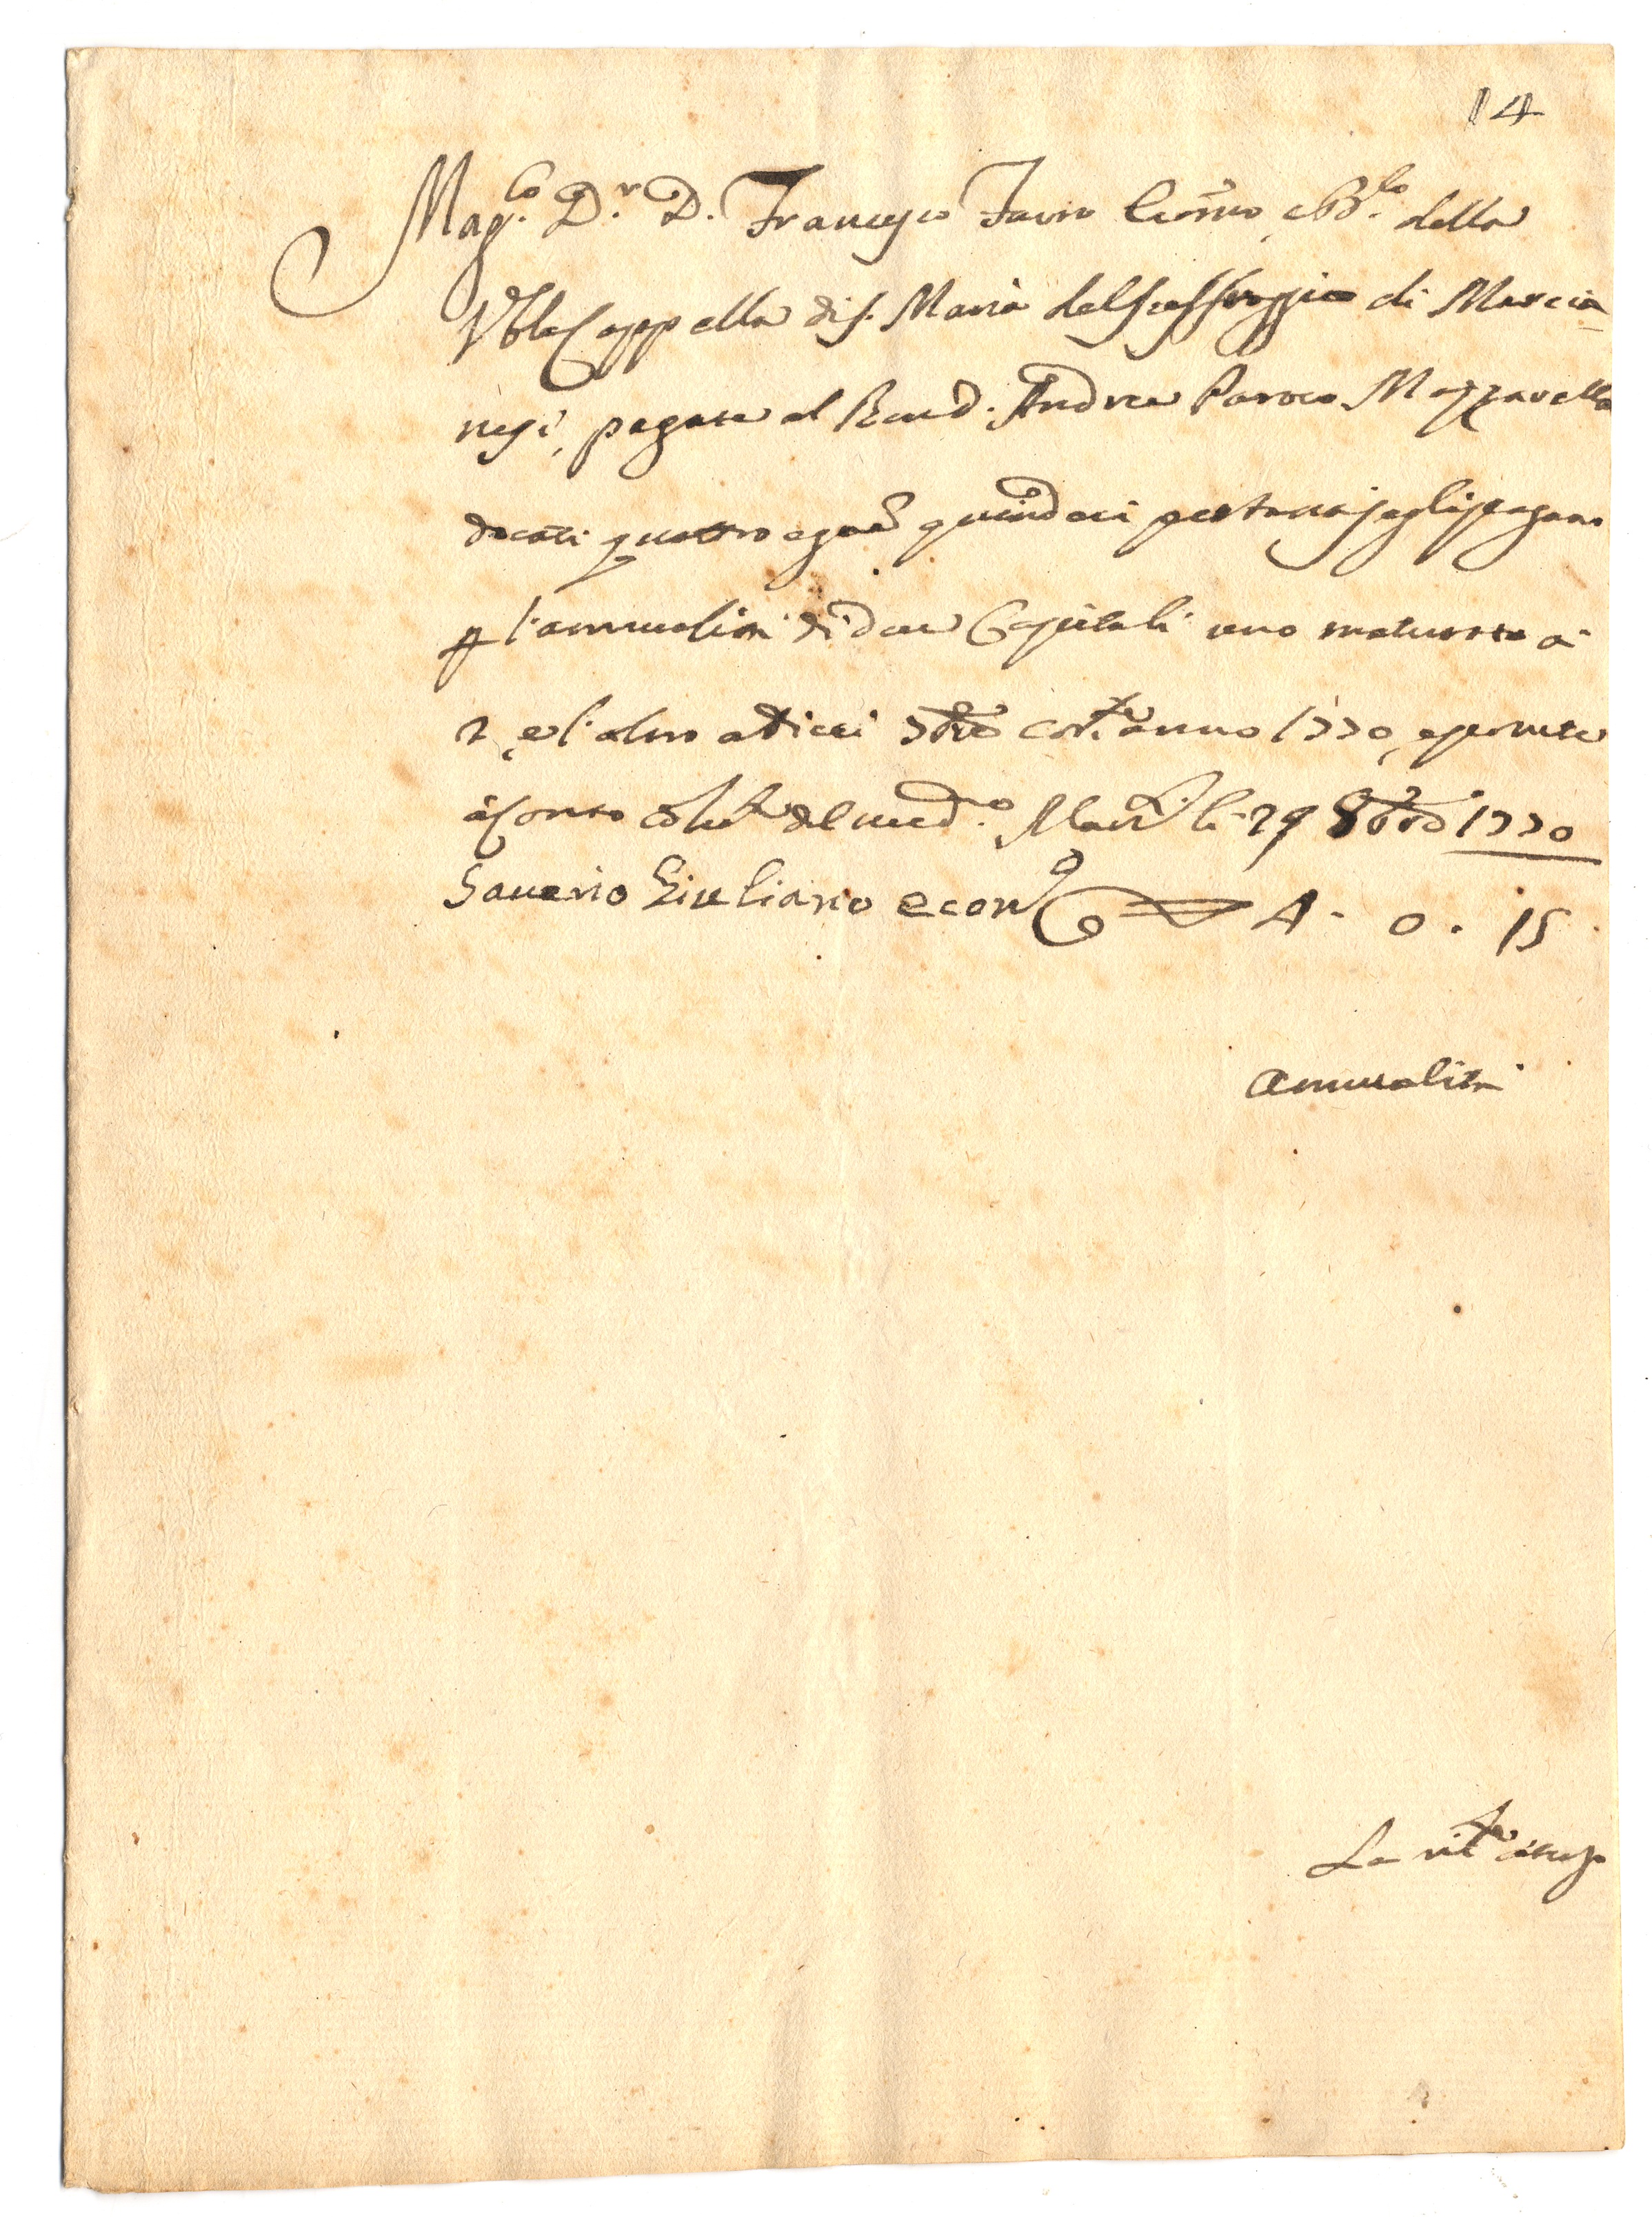 14
Mag.co D.r D. Francesco Favro della
Cappella di S. Maria del Suffraggio di Marcia=
nesi, pagate al Rev.d Andrea Paroco Mazzarella
docati quattro e gra quindeci per tanti se gli pagano
l'annualità di due Capitali uno maturato a
2, e l'altro a dieci 7bre corr.te anno 1770, e ponete
à conto del med.o Mar. li 29 8bre 1770
Saverio Giuliano econ.o 4 - 0 - 15
annualità